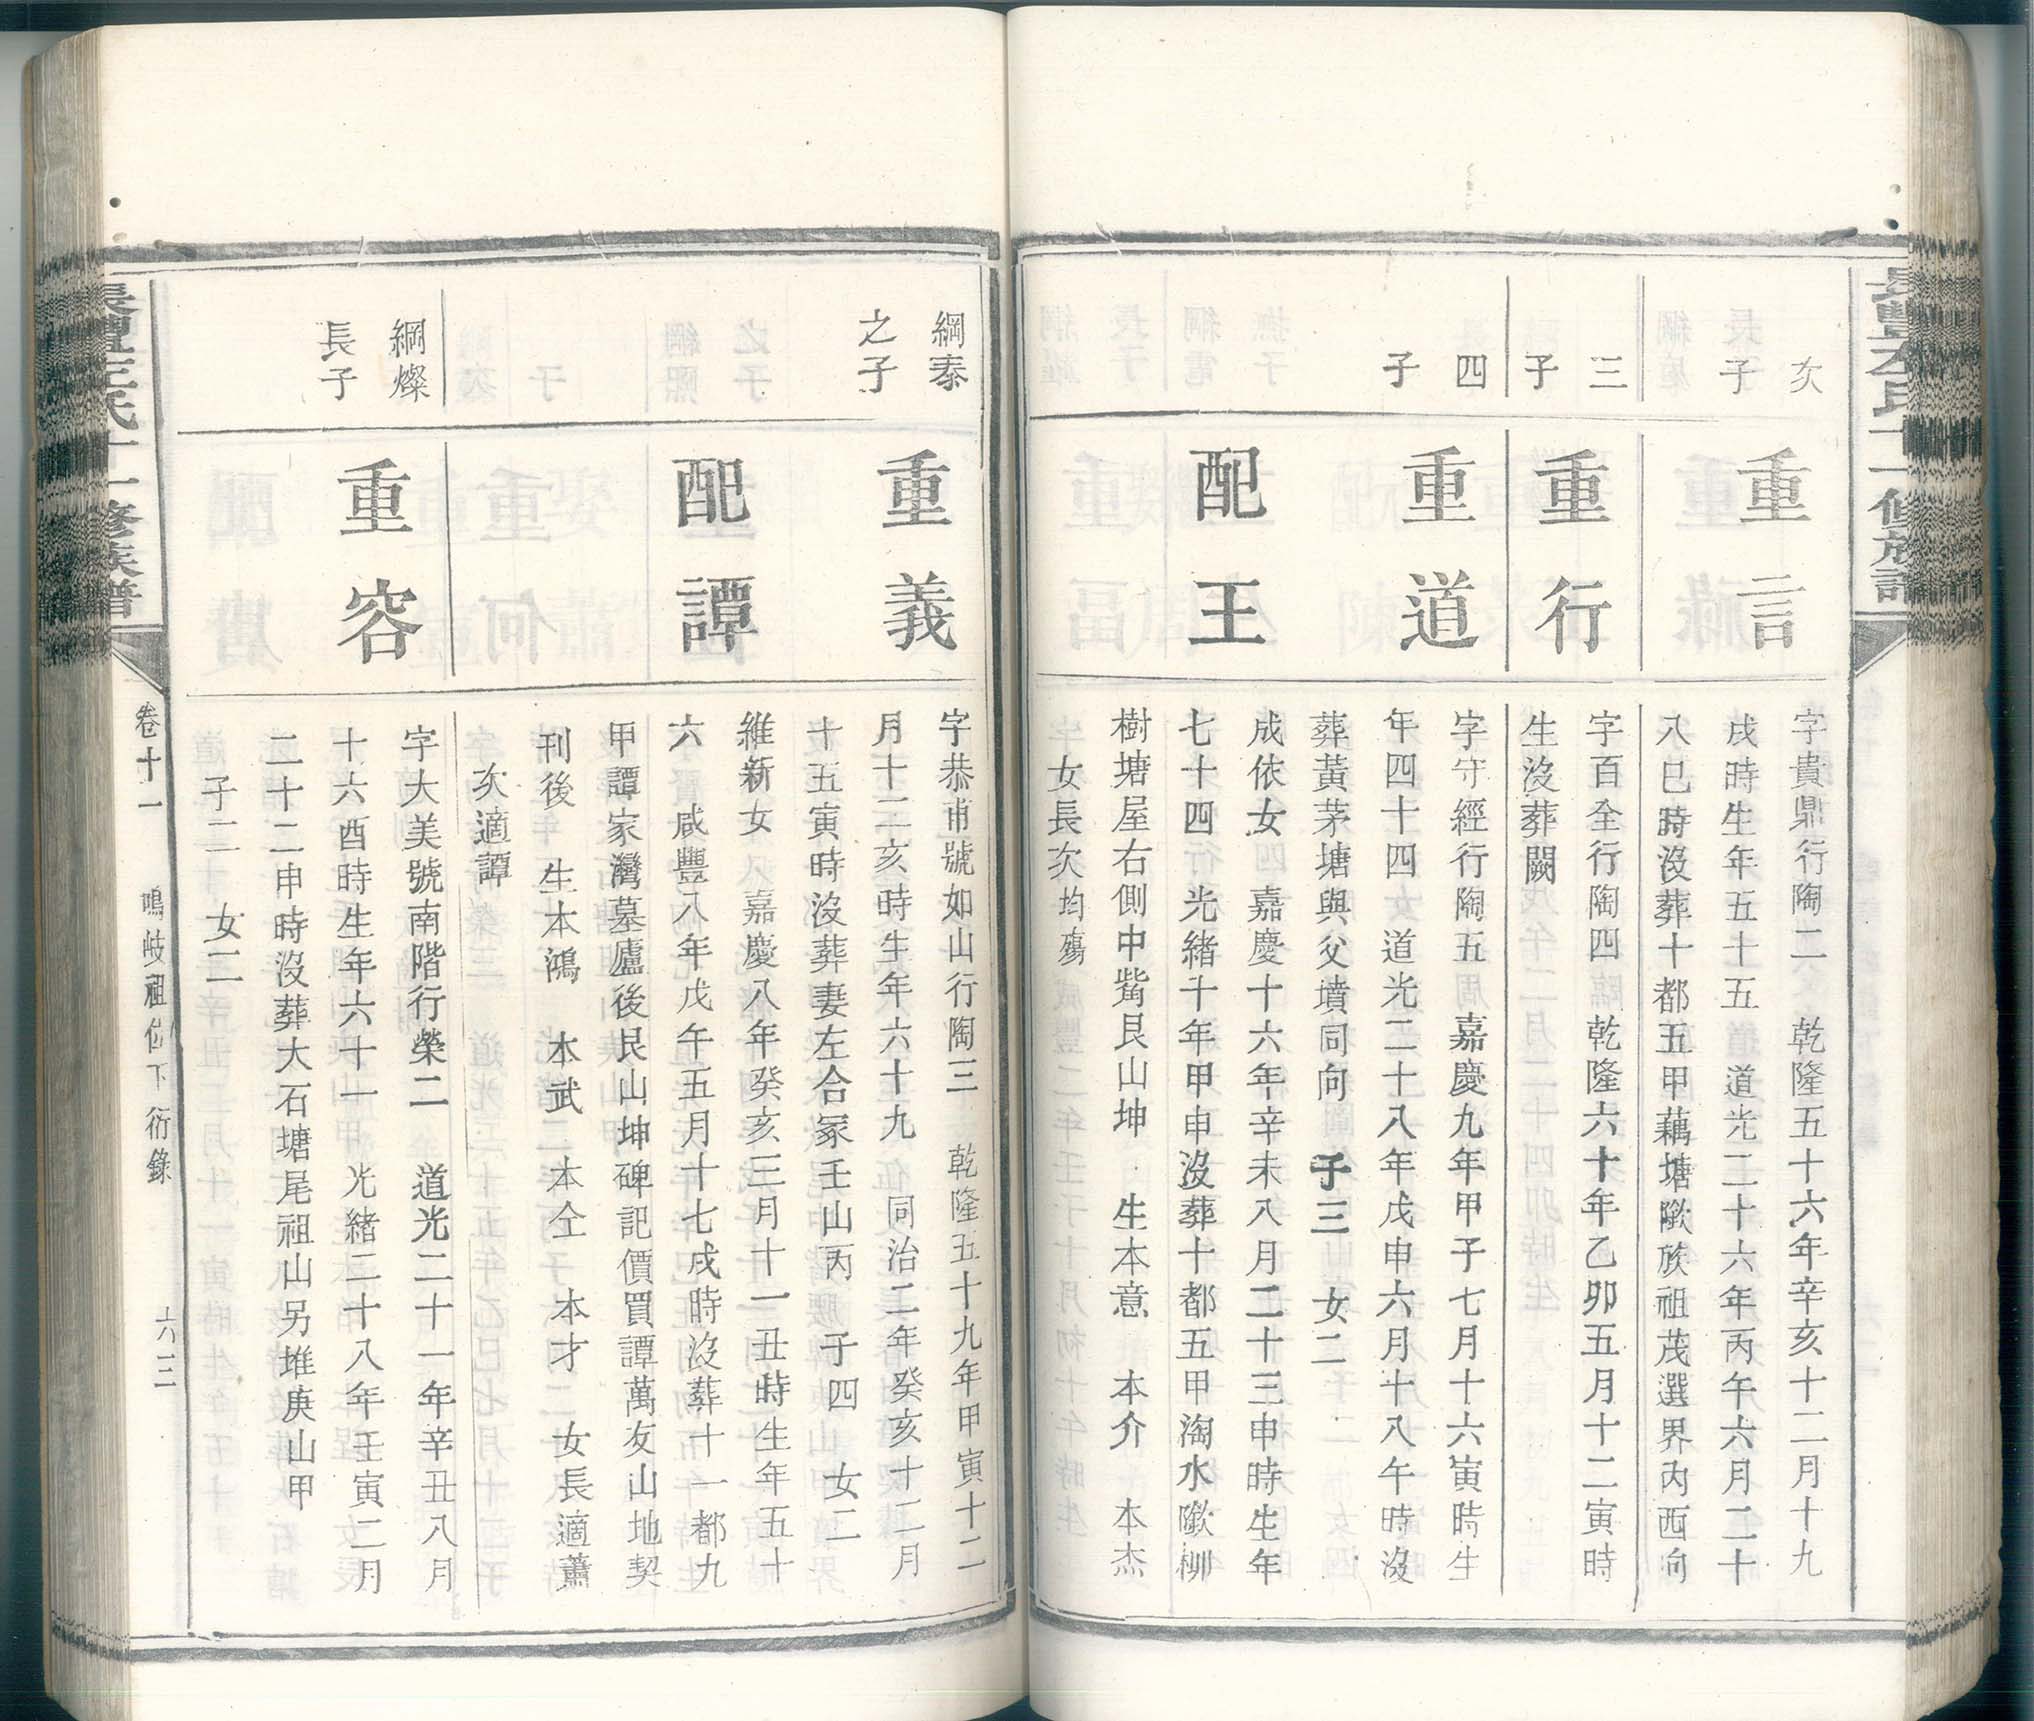 次
子
重言
字貴鼎行陶二 乾隆五十六年辛亥十二月十九
戌時生年五十五 道光二十六年丙午六月二十
八巳時沒葬十都五甲藕塘𡼏族祖茂選界內西向
三
子
重行
字百全行陶四 乾隆六十年乙卯五月十二寅時
生沒葬闕
四
子
重道
字守經行陶五 嘉慶九年甲子七月十六寅時生
年四十四 道光二十八年戊申六月十八午時沒
葬黃茅塘與父墳同向 子三 女二
配王
成依女 嘉慶十六年辛未八月二十三申時生年
七十四 光緒十年甲申沒葬十都五甲淘水𡼏柳
樹塘屋右側中觜艮山坤 生本意 本介 本杰
女長次均殤
綱泰
之子
重義
字恭甫號如山行陶三 乾隆五十九年甲寅十二
月十二亥時生年六十九 同治二年癸亥十二月
十五寅時沒葬妻左合冢壬山丙 子四 女二
配譚
維新女 嘉慶八年癸亥三月十一丑時生年五十
六 咸豐八年戊午五月十七戌時沒葬十一都九
甲譚家灣墓廬後艮山坤碑記價買譚萬友山地契
刊後 生本鴻 本武 本仝 本才 女長適蕭
次適譚
綱燦
長子
重容
字大美號南階行榮二 道光二十一年辛丑八月
十六酉時生年六十一 光緒二十八年壬寅二月
二十二申時沒葬大石塘尾祖山另堆庚山甲
子二 女二
左氏十一修族譜
卷十一 鳴岐祖位下衍錄 六三